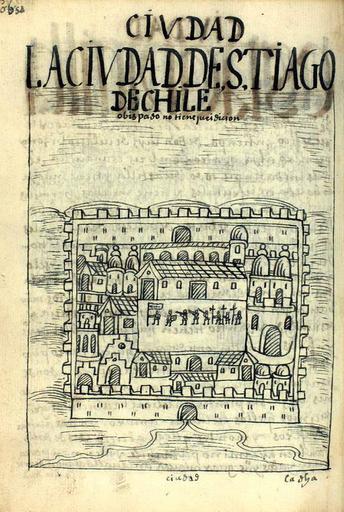 CIVDAD
LACIVDAD.DE,S,TIAGO
DECHILE
obispado no tiene juridicion
ciudad